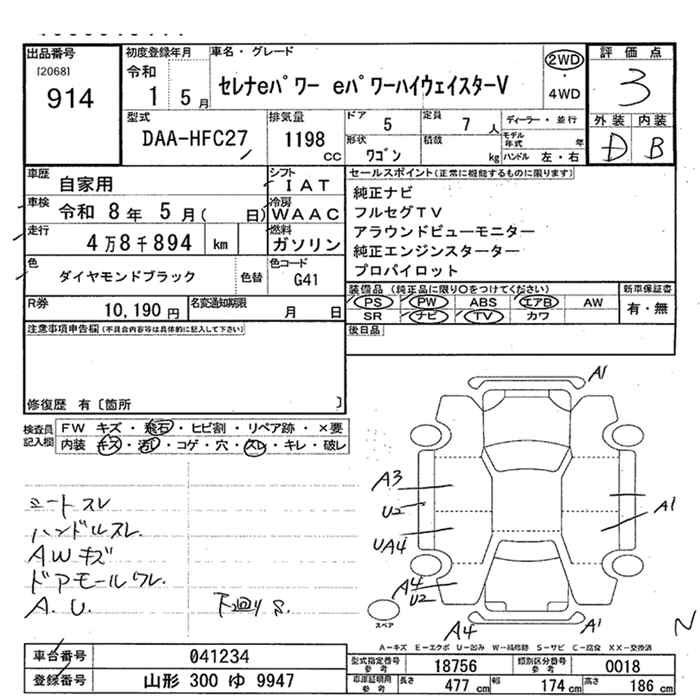 出品番号
[2068]
914
初度登録年月
令和
1 5月
車名・グレード
セレナeパワー eパワーハイウェイスターV
2WD
・
4WD
評価点
3
外装 内装
D B
型式
DAA-HFC27
排気量
1198
cc
ドア 5
定員 7人
ディーラー・並行
形状 ワゴン
積載 kg
モデル年式 年
ハンドル 左・右
車歴 自家用
シフト IAT
車検 令和 8年 5月( 日)
冷房 WAAC
走行 4万8千894 km
燃料 ガソリン
色 ダイヤモンドブラック
色替
色コード G41
R券 10,190円
名変通知期限 月 日
セールスポイント(正常に機能するものに限ります)
純正ナビ
フルセグTV
アラウンドビューモニター
純正エンジンスターター
プロパイロット
装備品 (純正品に限り○をつけてください)
PS PW ABS エアB AW
SR ナビ TV カワ
新車保証書
有・無
後日品
注意事項申告欄(不具合内容等は具体的に記入して下さい)
修復歴 有〔箇所 〕
検査員記入欄
FW キズ・飛石・ヒビ割・リペア跡・×要
内装 キズ・汚レ・コゲ・穴・スレ・キレ・破レ
シートスレ
ハンドルスレ.
AWキズ
ドアモールワレ.
A.U.
下回りS.
A1
A3
U2
UA4
A4
U2
A1
A4
A1
スペア
N
A-キズ E-エクボ U-凹み W-補修跡 S-サビ C-腐食 XX-交換済
車台番号 041234
登録番号 山形 300 ゆ 9947
型式指定番号 参考 18756
類別区分番号 参考 0018
車庫証明用 参考
長さ 477cm
幅 174cm
高さ 186cm